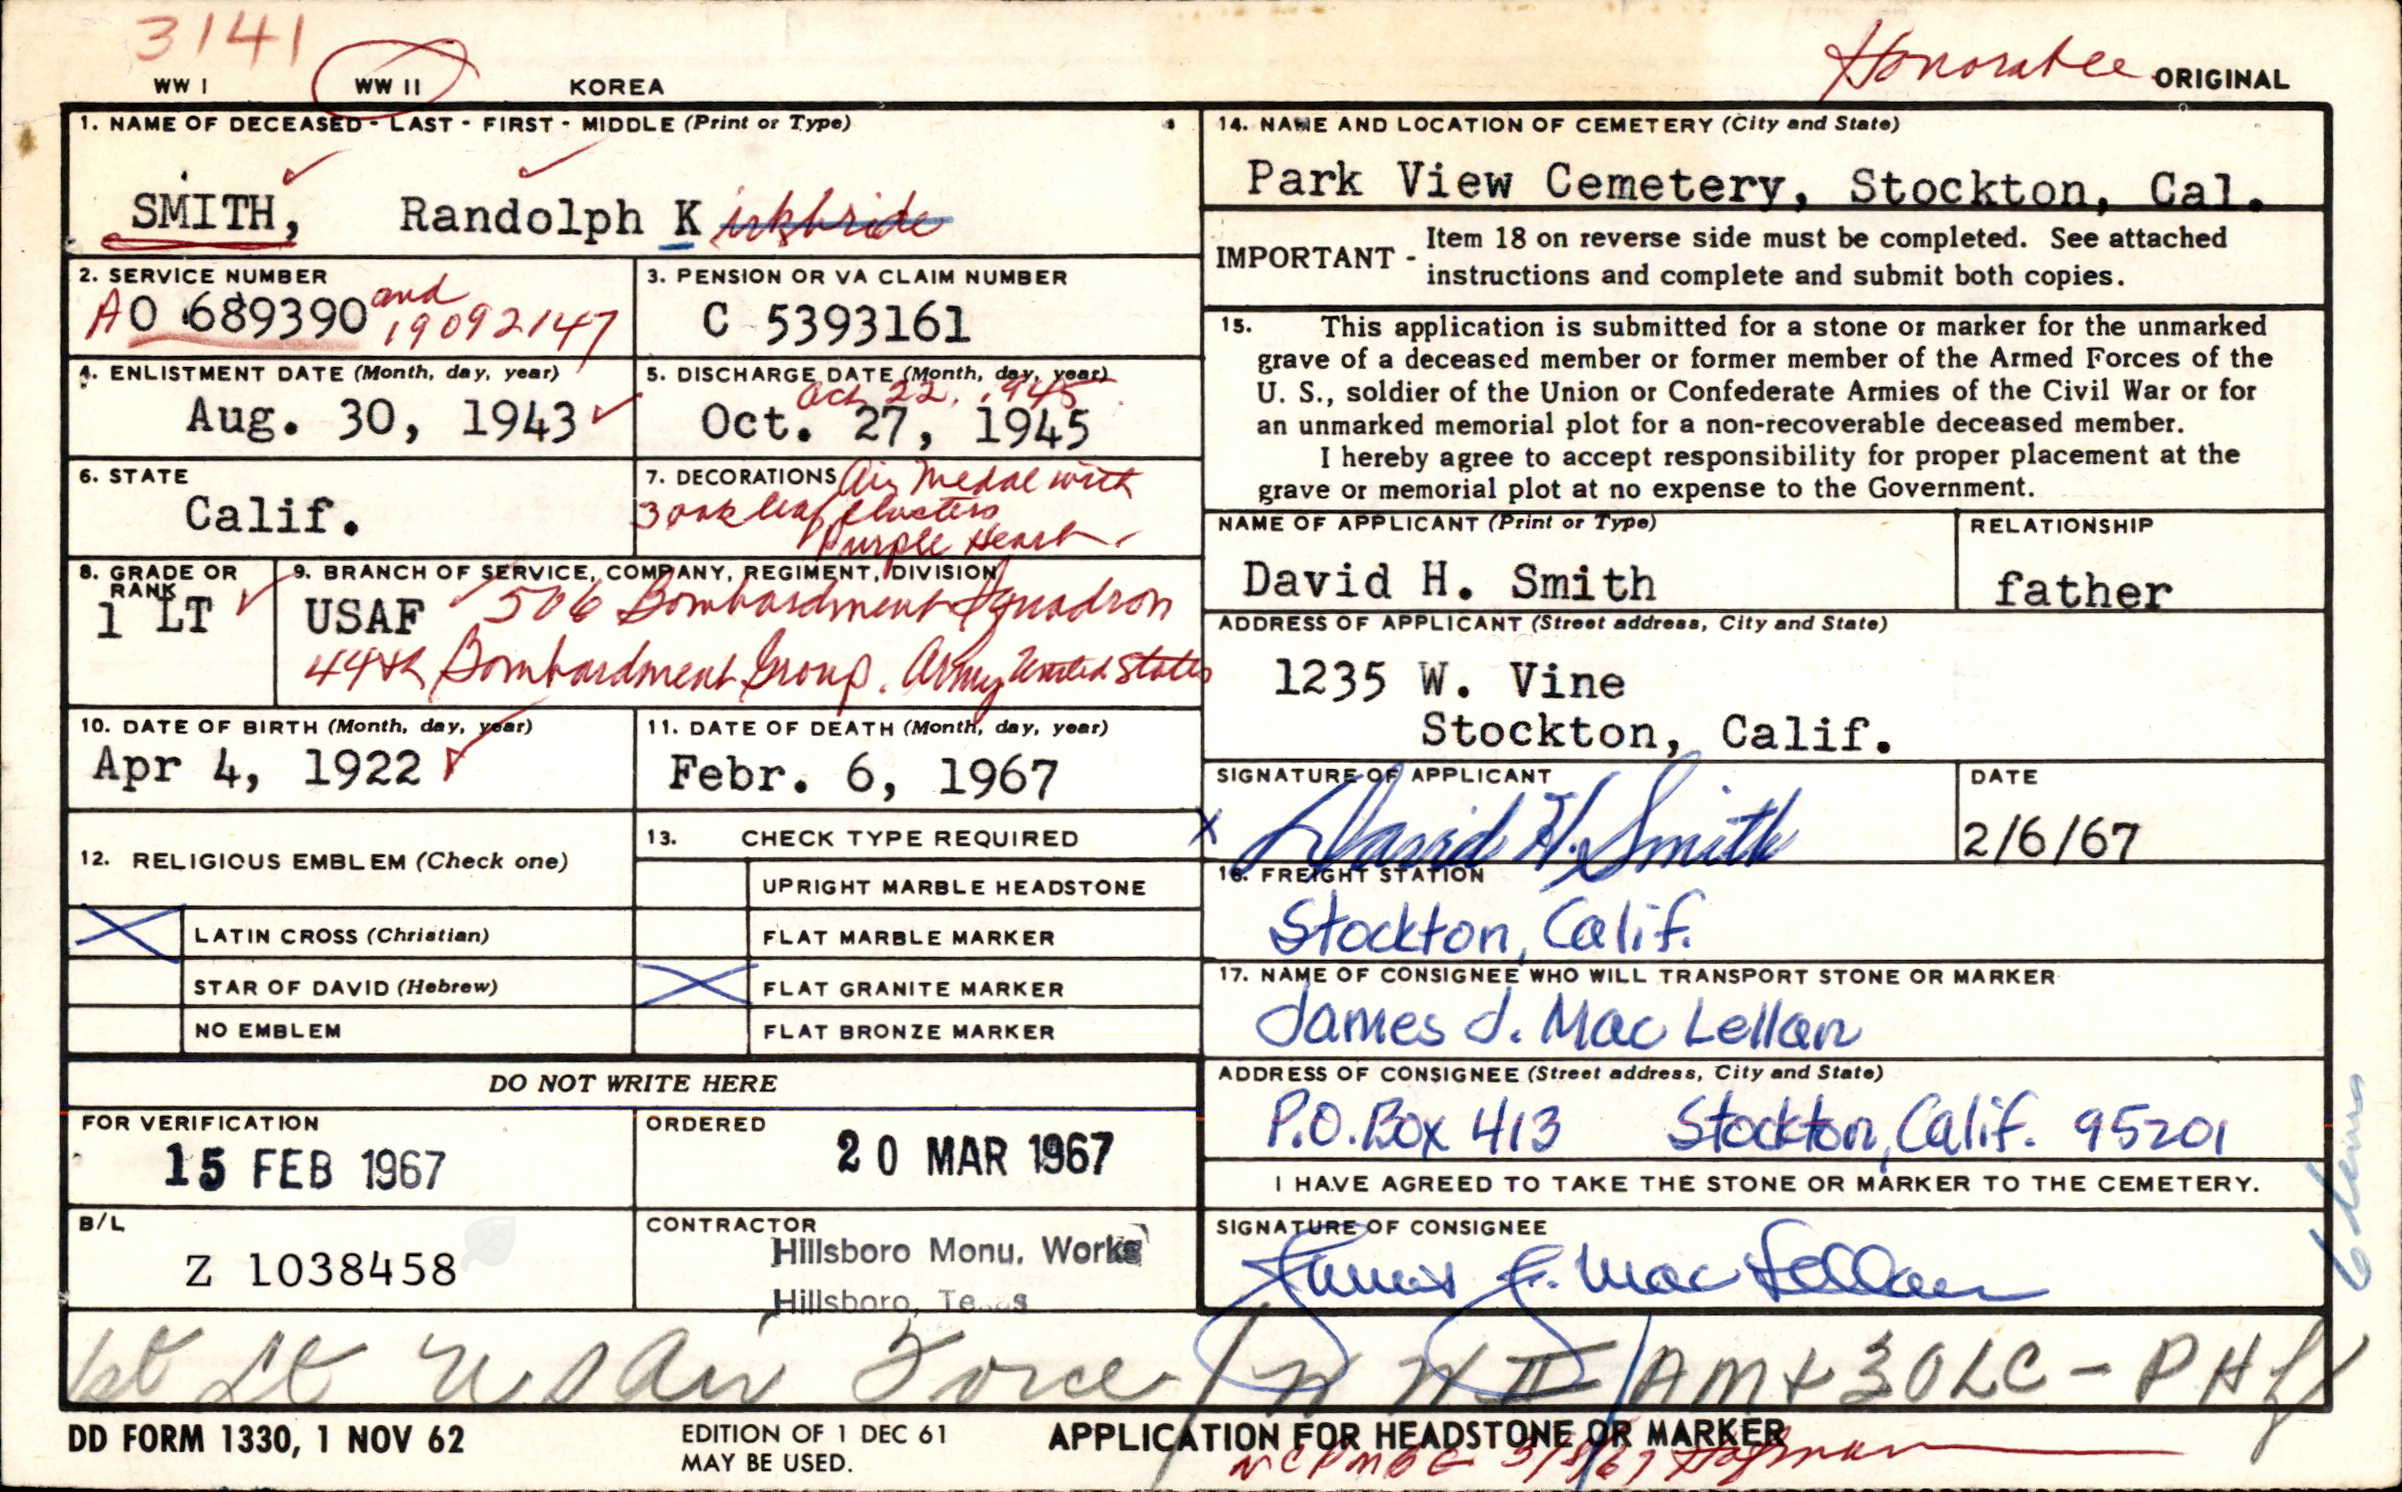 3141
WW I WW II KOREA
Honorable ORIGINAL
1. NAME OF DECEASED - LAST - FIRST - MIDDLE (Print or Type)
SMITH, Randolph K irkbride
2. SERVICE NUMBER
AO 689390 and 19092147
3. PENSION OR VA CLAIM NUMBER
C 5393161
4. ENLISTMENT DATE (Month, day, year)
Aug. 30, 1943
5. DISCHARGE DATE (Month, day, year)
Oct 22, 1945
Oct. 27, 1945
6. STATE
Calif.
7. DECORATIONS Air Medal with
3 oak leaf clusters
Purple Heart
8. GRADE OR RANK
1 LT
9. BRANCH OF SERVICE, COMPANY, REGIMENT, DIVISION
USAF 506 Bombardment Squadron
44th Bombardment Group. Army United States
10. DATE OF BIRTH (Month, day, year)
Apr 4, 1922
11. DATE OF DEATH (Month, day, year)
Febr. 6, 1967
12. RELIGIOUS EMBLEM (Check one)
X LATIN CROSS (Christian)
STAR OF DAVID (Hebrew)
NO EMBLEM
13. CHECK TYPE REQUIRED
UPRIGHT MARBLE HEADSTONE
FLAT MARBLE MARKER
X FLAT GRANITE MARKER
FLAT BRONZE MARKER
DO NOT WRITE HERE
FOR VERIFICATION
15 FEB 1967
ORDERED
20 MAR 1967
B/L
Z 1038458
CONTRACTOR
Hillsboro Monu. Works
Hillsboro, Texas
14. NAME AND LOCATION OF CEMETERY (City and State)
Park View Cemetery, Stockton, Cal.
IMPORTANT - Item 18 on reverse side must be completed. See attached
instructions and complete and submit both copies.
15. This application is submitted for a stone or marker for the unmarked
grave of a deceased member or former member of the Armed Forces of the
U. S., soldier of the Union or Confederate Armies of the Civil War or for
an unmarked memorial plot for a non-recoverable deceased member.
I hereby agree to accept responsibility for proper placement at the
grave or memorial plot at no expense to the Government.
NAME OF APPLICANT (Print or Type)
David H. Smith
RELATIONSHIP
father
ADDRESS OF APPLICANT (Street address, City and State)
1235 W. Vine
Stockton, Calif.
SIGNATURE OF APPLICANT
X David H. Smith
DATE
2/6/67
16. FREIGHT STATION
Stockton, Calif.
17. NAME OF CONSIGNEE WHO WILL TRANSPORT STONE OR MARKER
James J. Mac Lellan
ADDRESS OF CONSIGNEE (Street address, City and State)
P.O. Box 413 Stockton, Calif. 95201
I HAVE AGREED TO TAKE THE STONE OR MARKER TO THE CEMETERY.
SIGNATURE OF CONSIGNEE
James J. Mac Lellan
1st Lt US Air Force / W W II / AM & 3 OLC - PH
DD FORM 1330, 1 NOV 62
EDITION OF 1 DEC 61
MAY BE USED.
APPLICATION FOR HEADSTONE OR MARKER